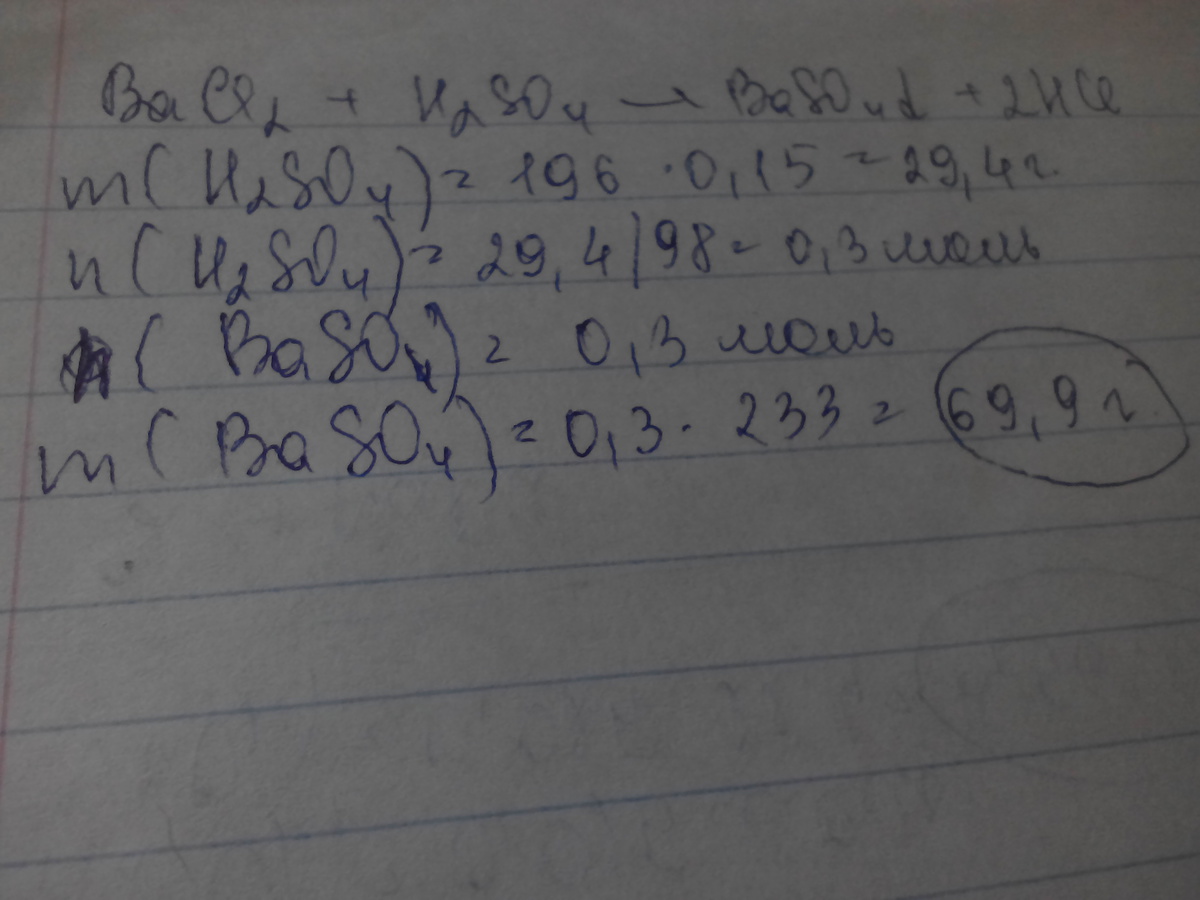 BaCl₂ + H₂SO₄ → BaSO₄↓ + 2HCl
m(H₂SO₄) = 196 · 0,15 = 29,4 г.
n(H₂SO₄) = 29,4/98 = 0,3 моль
n(BaSO₄) = 0,3 моль
m(BaSO₄) = 0,3 · 233 = 69,9 г.